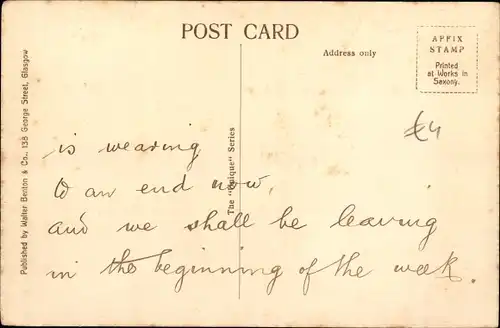 POST CARD
Address only
AFFIX
STAMP
Printed
at Works in
Saxony.
£4
Published by Walter Benton & Co., 138 George Street, Glasgow
The "Unique" Series
is wearing
to an end now,
and we shall be leaving
in the beginning of the week.